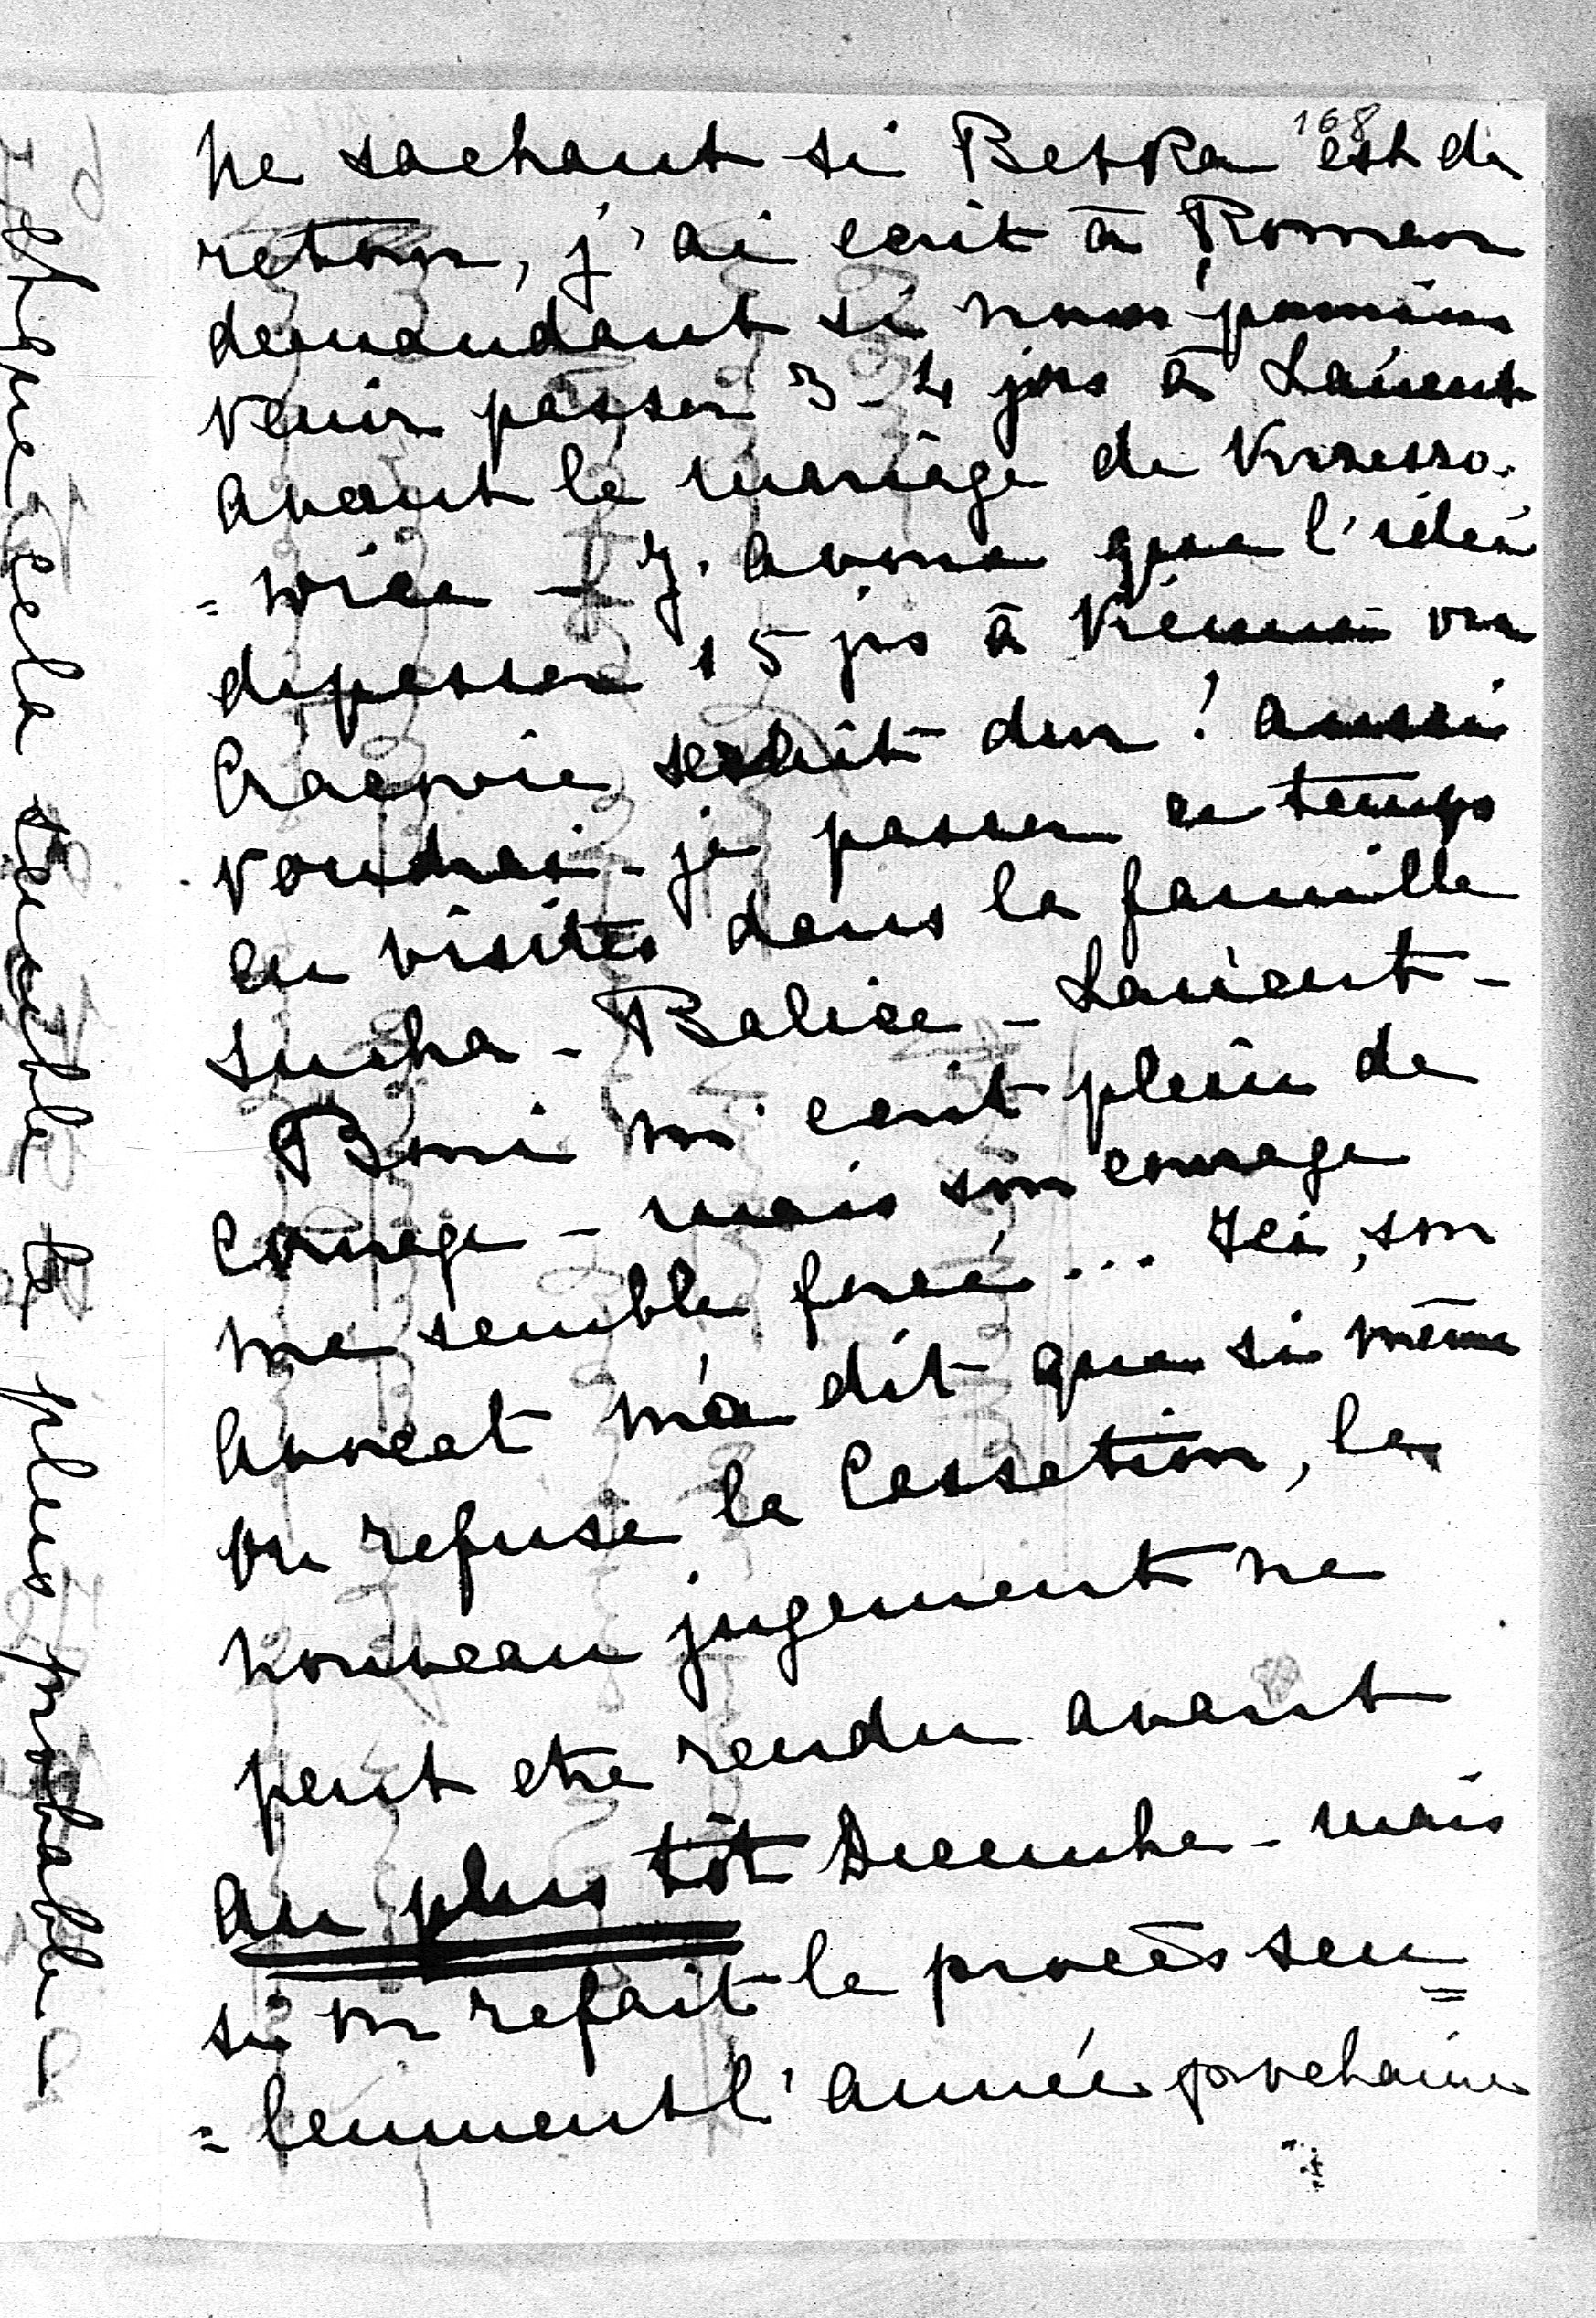 168
Ne sachant si Betka est de
retour, j'ai ecrit à Roman
demandant si nous pouvions
venir passer 3-4 jrs à Lancut
avant le mariage de Krzeszo=
=wice - J'avoue que l'idée
de passer 15 jrs à Vienne ou
Cracovie serait dur! aussi
voudrai-je passer ce temps
en visites dans la famille
Sucha - Balice - Lancut -
Boni m'ecrit plein de
courage - mais son courage
me semble forcé... Ici, son
avocat m'a dit que si même
on refuse la Cassation, le
nouveau jugement ne
peut etre rendu avant
au plus tôt Decembre - mais
si on refait le procès seu=
=lemment l'année prochaine
et que cela semble le plus probable -